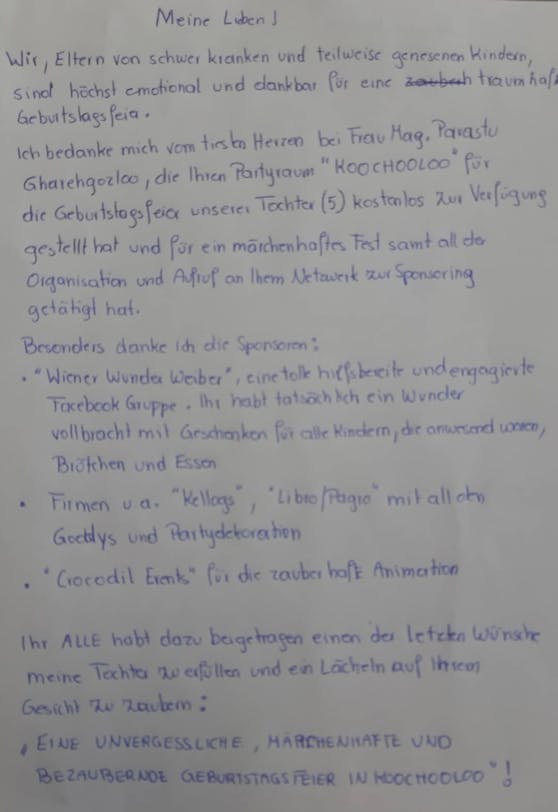 Meine Lieben!
Wir, Eltern von schwer kranken und teilweise genesenen Kindern,
sind höchst emotional und dankbar für eine traumhaft
Geburtstagsfeia.
Ich bedanke mich vom tiesten Herzen bei Frau Mag. Parastu
Gharehgozloo, die Ihren Partyraum "KOOCHOOLOO" für
die Geburtstagsfeier unserer Tochter (5) kostenlos zur Verfügung
gestellt hat und für ein märchenhaftes Fest samt all der
Organisation und Aufruf an Ihem Netzwerk zur Sponsering
getätigt hat.
Besonders danke ich die Sponsoren:
• "Wiener Wunder Weiber", eine tolle hilfsbereite und engagierte
Facebook Gruppe. Ihr habt tatsächlich ein Wunder
vollbracht mit Geschenken für alle Kindern, die anwesend waren,
Brötchen und Essen
• Firmen u.a. "Kellogs", "Libro/Pagro" mit all den
Goodys und Partydekoration
• "Crocodil Events" für die zauberhaft Animation
Ihr ALLE habt dazu beigetragen einen der letzten Wünsche
meine Tochter zu erfüllen und ein Lächeln auf Ihrem
Gesicht zu zaubern:
„EINE UNVERGESSLICHE, MÄRCHENHAFTE UND
BEZAUBERNDE GEBURTSTAGSFEIER IN KOOCHOOLOO"!